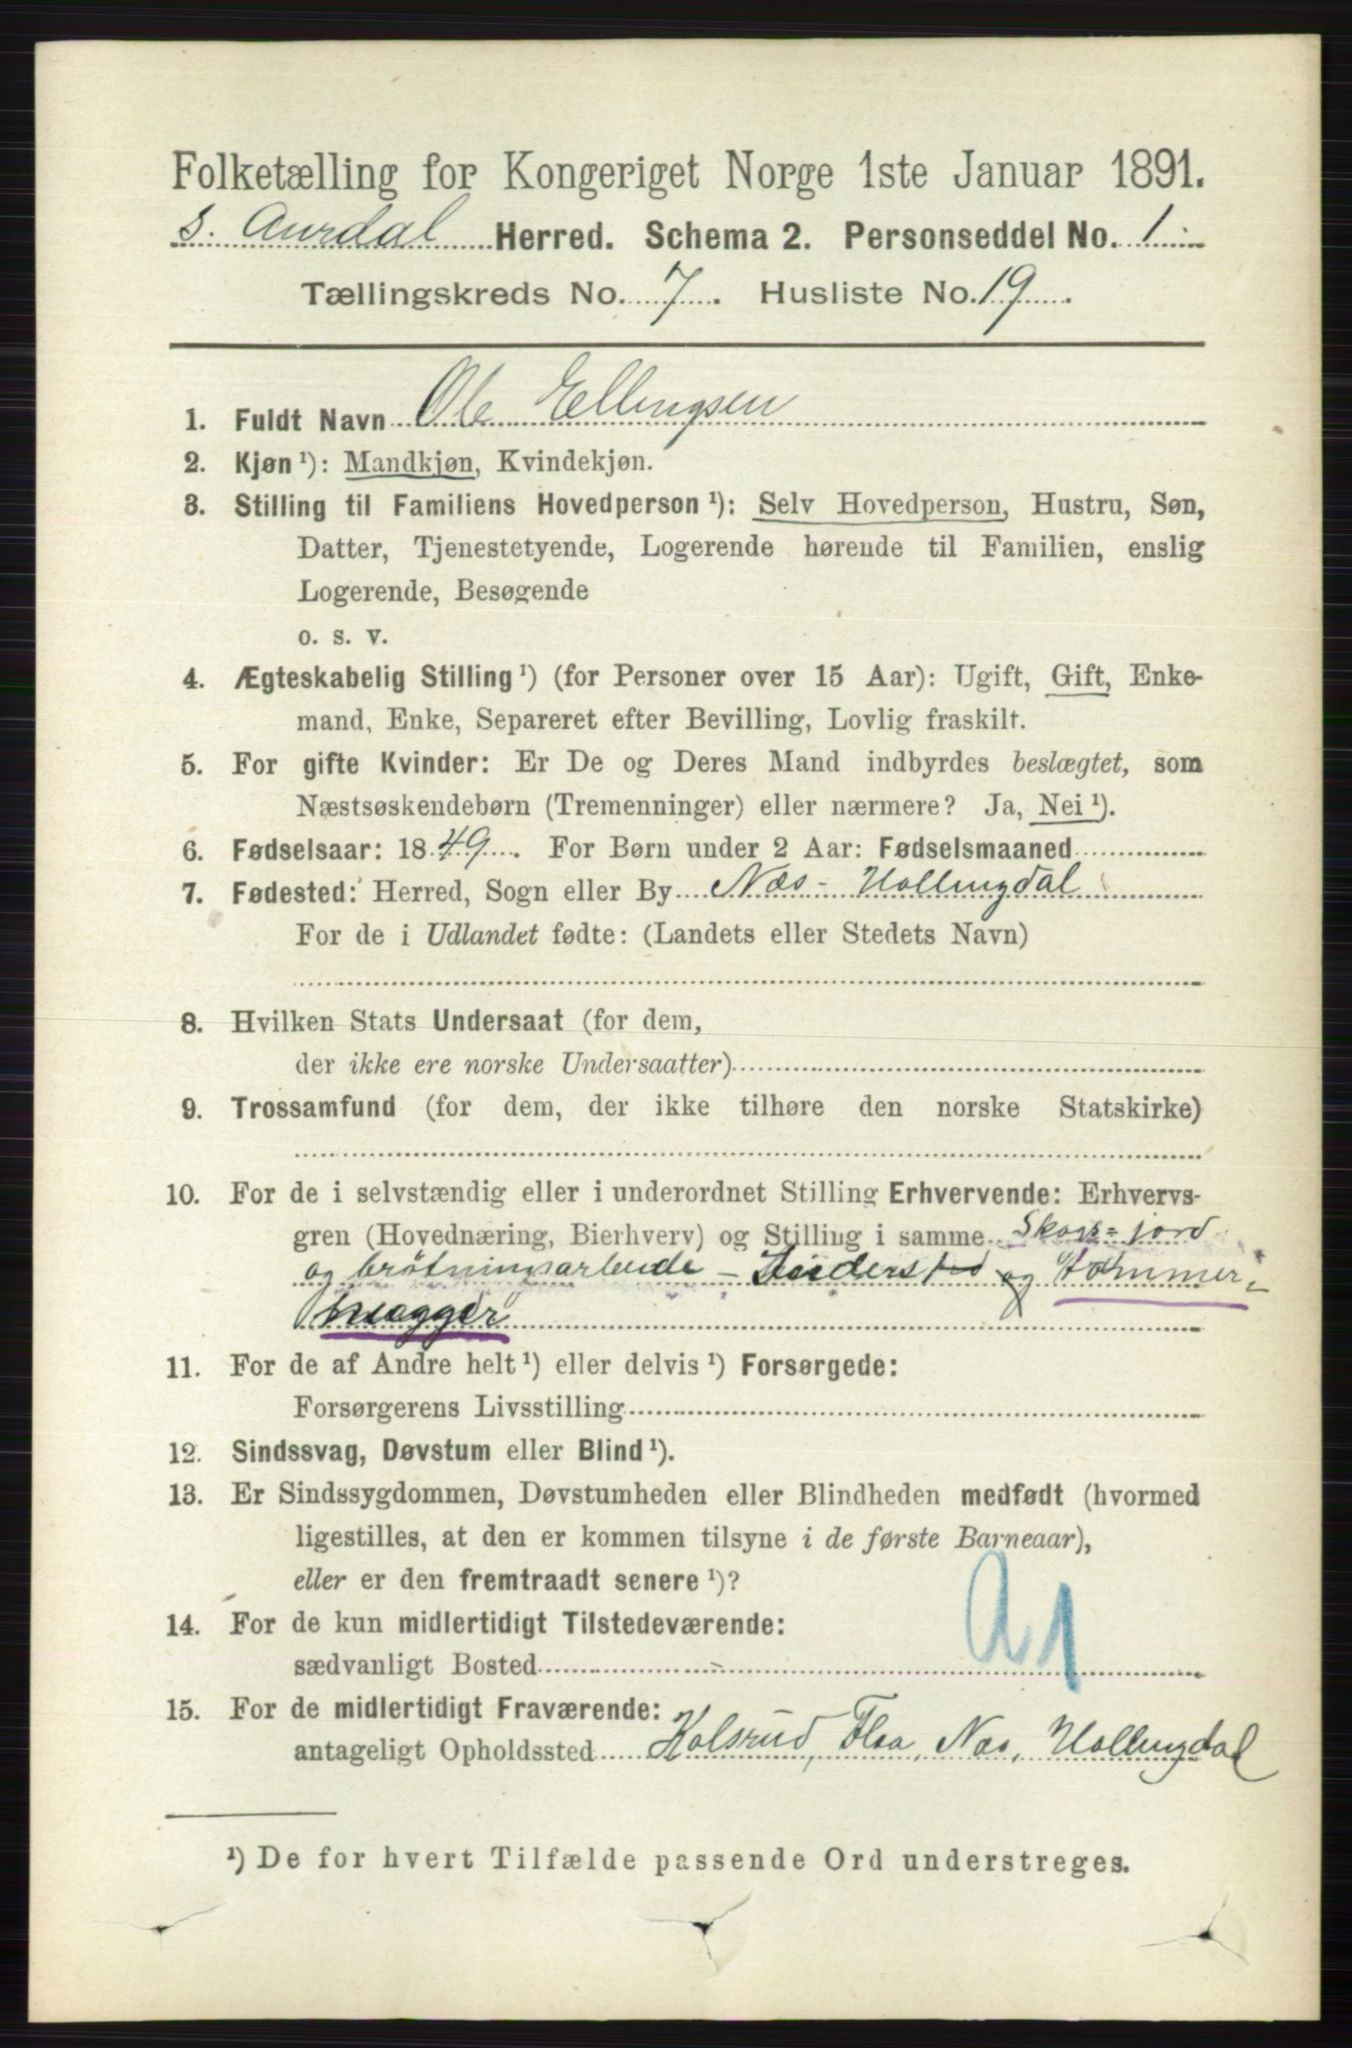 Folketælling for Kongeriget Norge 1ste Januar 1891.
S. Aurdal Herred. Schema 2. Personseddel No. 1.
Tællingskreds No. 7. Husliste No. 19.
1. Fuldt Navn Ole Ellingsen
2. Kjøn ¹): Mandkjøn, Kvindekjøn.
3. Stilling til Familiens Hovedperson ¹): Selv Hovedperson, Hustru, Søn,
Datter, Tjenestetyende, Logerende hørende til Familien, enslig
Logerende, Besøgende
o. s. v.
4. Ægteskabelig Stilling ¹) (for Personer over 15 Aar): Ugift, Gift, Enke-
mand, Enke, Separeret efter Bevilling, Lovlig fraskilt.
5. For gifte Kvinder: Er De og Deres Mand indbyrdes beslægtet, som
Næstsøskendebørn (Tremenninger) eller nærmere? Ja, Nei ¹).
6. Fødselsaar: 1849. For Børn under 2 Aar: Fødselsmaaned
7. Fødested: Herred, Sogn eller By Næs - Hallingdal
For de i Udlandet fødte: (Landets eller Stedets Navn)
8. Hvilken Stats Undersaat (for dem,
der ikke ere norske Undersaatter)
9. Trossamfund (for dem, der ikke tilhøre den norske Statskirke)
10. For de i selvstændig eller i underordnet Stilling Erhvervende: Erhvervs-
gren (Hovednæring, Bierhverv) og Stilling i samme Skovs= jord
og brötningsarbeide - og tømmer-
hugger
11. For de af Andre helt ¹) eller delvis ¹) Forsørgede:
Forsørgerens Livsstilling
12. Sindssvag, Døvstum eller Blind ¹).
13. Er Sindssygdommen, Døvstumheden eller Blindheden medfødt (hvormed
ligestilles, at den er kommen tilsyne i de første Barneaar),
eller er den fremtraadt senere ¹)?
14. For de kun midlertidigt Tilstedeværende:
sædvanligt Bosted
15. For de midlertidigt Fraværende:
antageligt Opholdssted Kolsrud, Flaa, Næs, Hallingdal
¹) De for hvert Tilfælde passende Ord understreges.